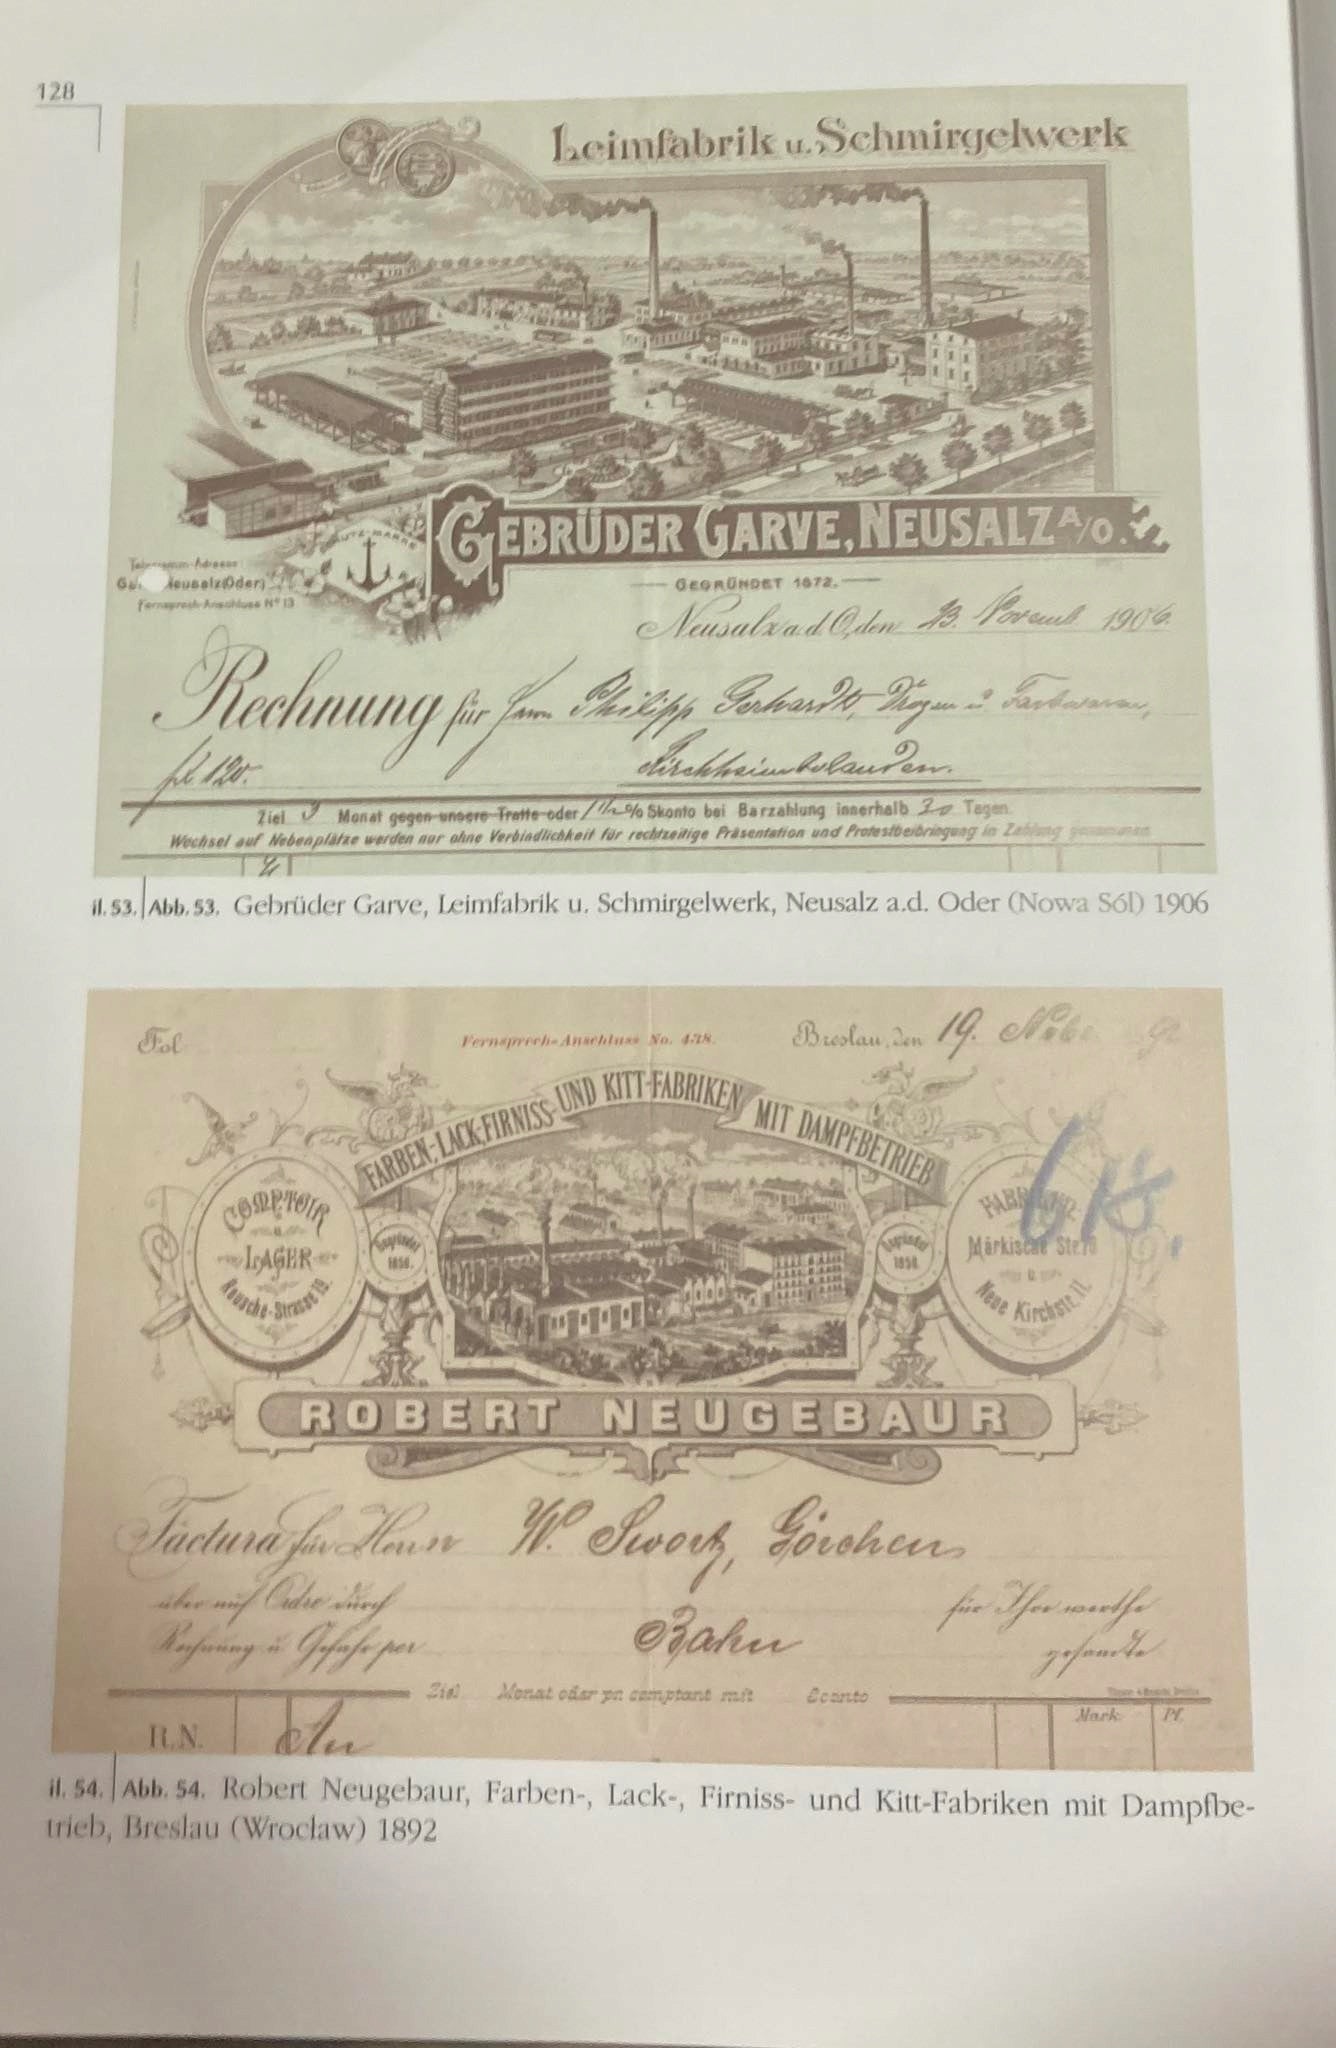 128
Leimfabrik u. Schmirgelwerk
GEBRÜDER GARVE, NEUSALZ A/O.
SCHUTZ-MARKE
Telegramm-Adresse:
Neusalz(Oder)
Fernsprech-Anschluss No 13
GEGRÜNDET 1872.
Neusalz a. d. O., den 23. Novemb 1906.
Rechnung für Herrn Philipp Gerhardt, Drogen u Farbwaren,
Kirchheimbolanden.
fol. 120.
Ziel 3 Monat gegen unsere Tratte oder 1 1/2 % Skonto bei Barzahlung innerhalb 30 Tagen.
Wechsel auf Nebenplätze werden nur ohne Verbindlichkeit für rechtzeitige Präsentation und Protestbeibringung in Zahlung genommen.
il. 53. Abb. 53. Gebrüder Garve, Leimfabrik u. Schmirgelwerk, Neusalz a.d. Oder (Nowa Sól) 1906
Fol
Fernsprech-Anschluss No. 438.
Breslau, den 19. 92
FARBEN-, LACK-, FIRNISS- UND KITT-FABRIKEN MIT DAMPFBETRIEB
COMPTOIR
u.
LAGER
Reusche-Strasse 19.
Gegründet
1858.
Gegründet
1858.
Märkische Str.
u.
Neue Kirchstr. 11.
ROBERT NEUGEBAUR
Factura für Herrn W. Swortz, Görchen
über auf Ordre durch
für Ihre werthe
Rechnung u Gefahr per Bahn
gesandte
Ziel Monat oder pr. comptant mit Sconto
R.N. An Mark. Pf.
il. 54. Abb. 54. Robert Neugebaur, Farben-, Lack-, Firniss- und Kitt-Fabriken mit Dampfbe-
trieb, Breslau (Wrocław) 1892